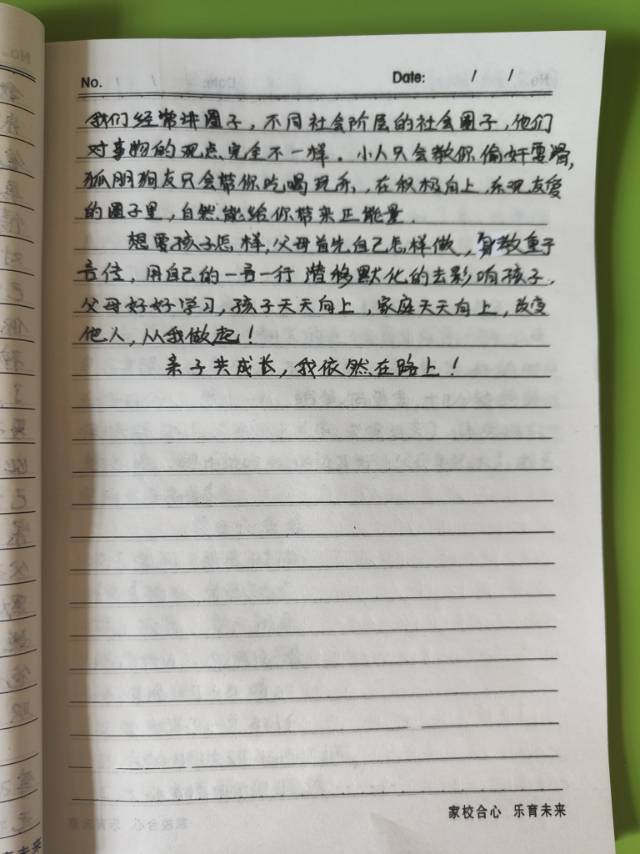 No.
Date: / /
我们经常讲圈子，不同社会阶层的社会圈子，他们
对事物的观点完全不一样。小人只会教你偷奸耍滑，
狐朋狗友只会带你吃喝玩乐，在积极向上、乐观友爱
的圈子里，自然能给你带来正能量。
想要孩子怎样，父母首先自己怎样做，身教重于
言传，用自己的一言一行潜移默化的去影响孩子，
父母好好学习，孩子天天向上，家庭天天向上，改变
他人，从我做起！
亲子共成长，我依然在路上！
家校合心 乐育未来